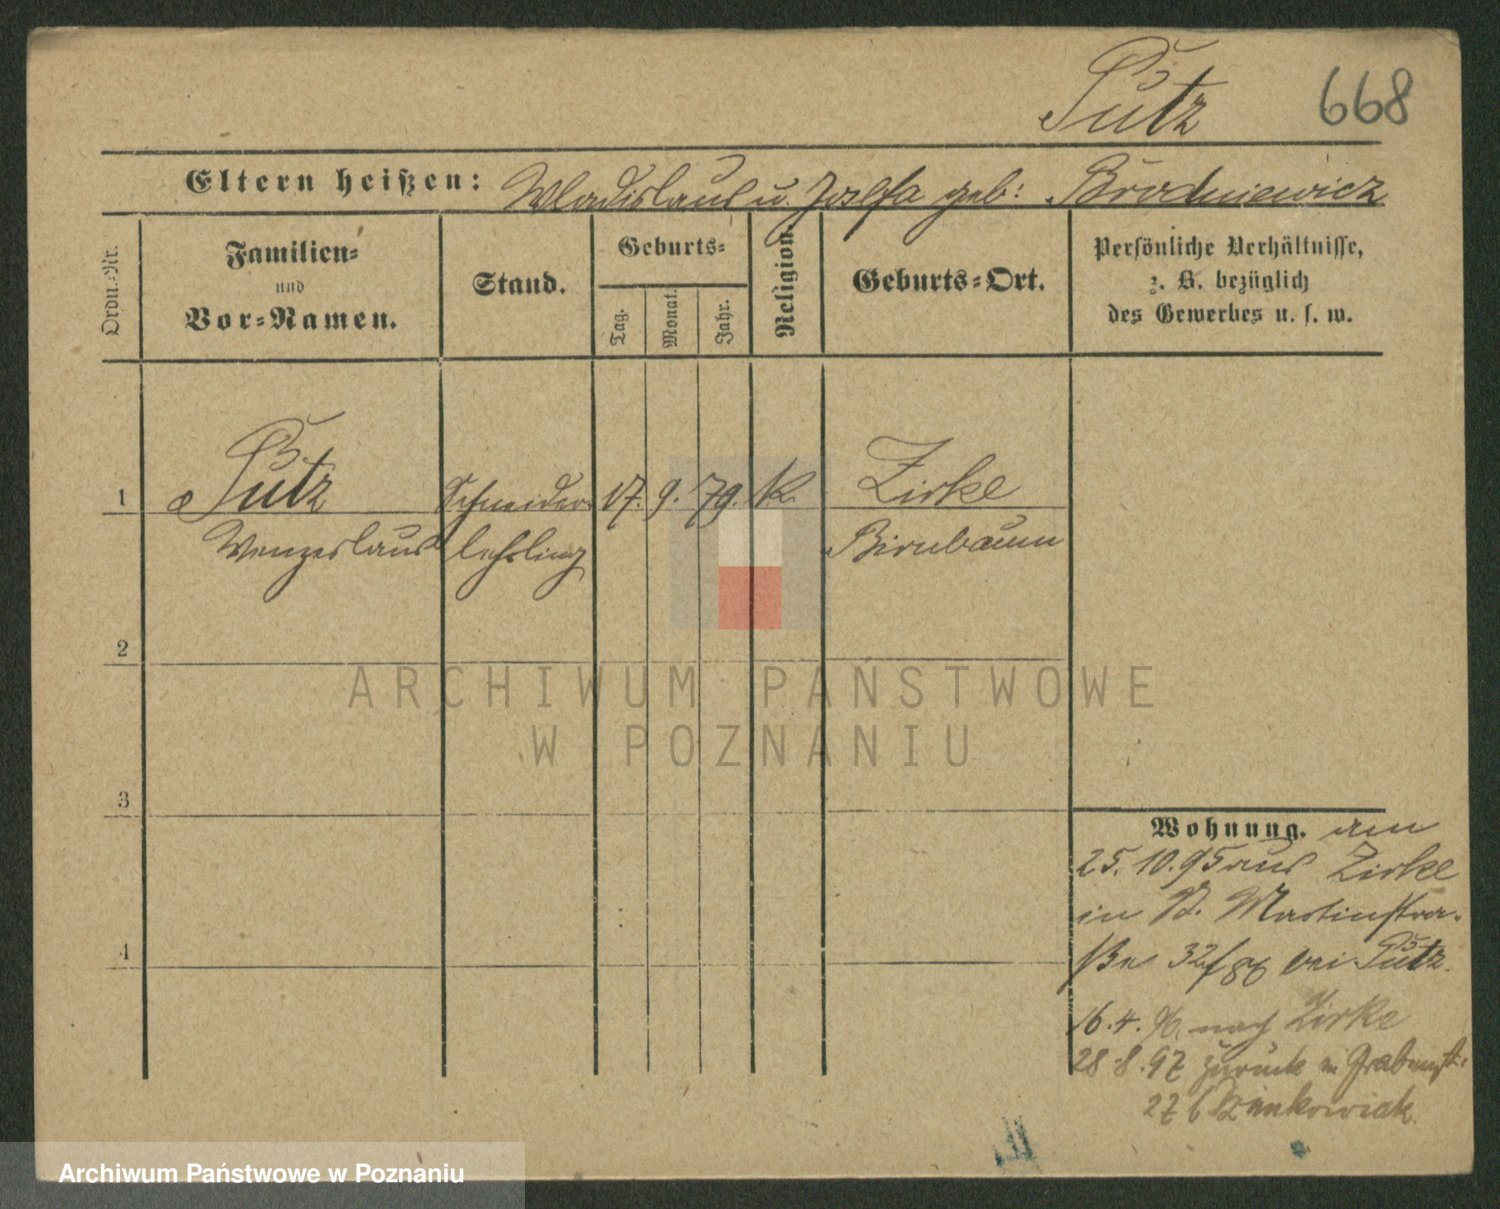 Putz 668
Eltern heißen: Wladislaus u. Josefa geb: Brodniewicz
Ordn.-Nr.
Familien-
und
Vor-Namen.
Stand.
Geburts-
Tag.
Monat.
Jahr.
Religion.
Geburts-Ort.
Persönliche Verhältnisse,
z. B. bezüglich
des Gewerbes u. s. w.
1 Putz Schneider- 17. 9. 79. K. Zirke
Wenzeslaus lehrling Birnbaum
2
3
4
Wohnung. am
25.10.95 aus Zirke
in St. Martinstra-
ße 32 bei Putz.
16.4.96. nach Zirke
28.8.97 zurück in Grabenstr.
27 b
ARCHIWUM PAŃSTWOWE
W POZNANIU
Archiwum Państwowe w Poznaniu